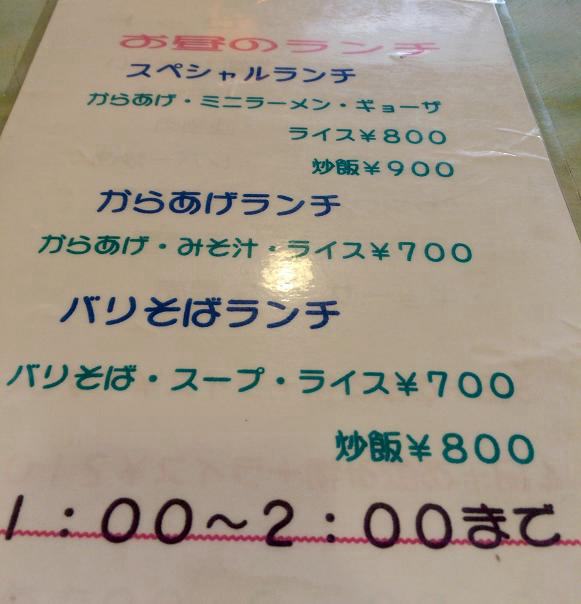 お昼のランチ
スペシャルランチ
からあげ・ミニラーメン・ギョーザ
ライス￥８００
炒飯￥９００
からあげランチ
からあげ・みそ汁・ライス￥７００
バリそばランチ
バリそば・スープ・ライス￥７００
炒飯￥８００
１：００～２：００まで